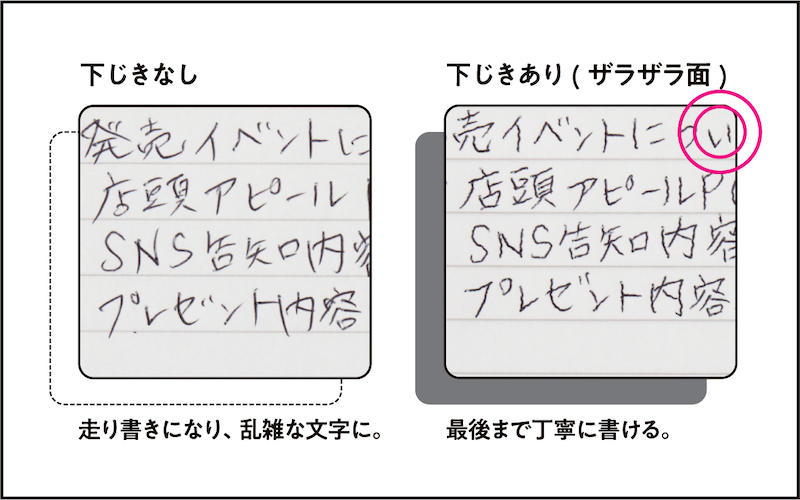 下じきなし
発売イベントに
店頭アピール
SNS告知内容
プレゼント内容
走り書きになり、乱雑な文字に。
下じきあり(ザラザラ面)
売イベントについ
店頭アピールP
SNS告知内容
プレゼント内容
最後まで丁寧に書ける。